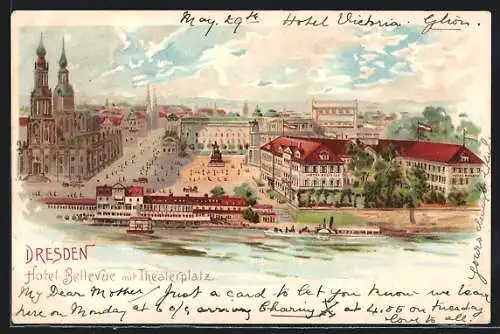 May. 29th Hotel Victoria. Glion.
DRESDEN
Hotel Bellevue mit Theaterplatz.
My Dear Mother / Just a card to let you know we leave
here on Monday at 6 o/c arriving Charing X at 4.55 on Tuesday
love to all!
Yours